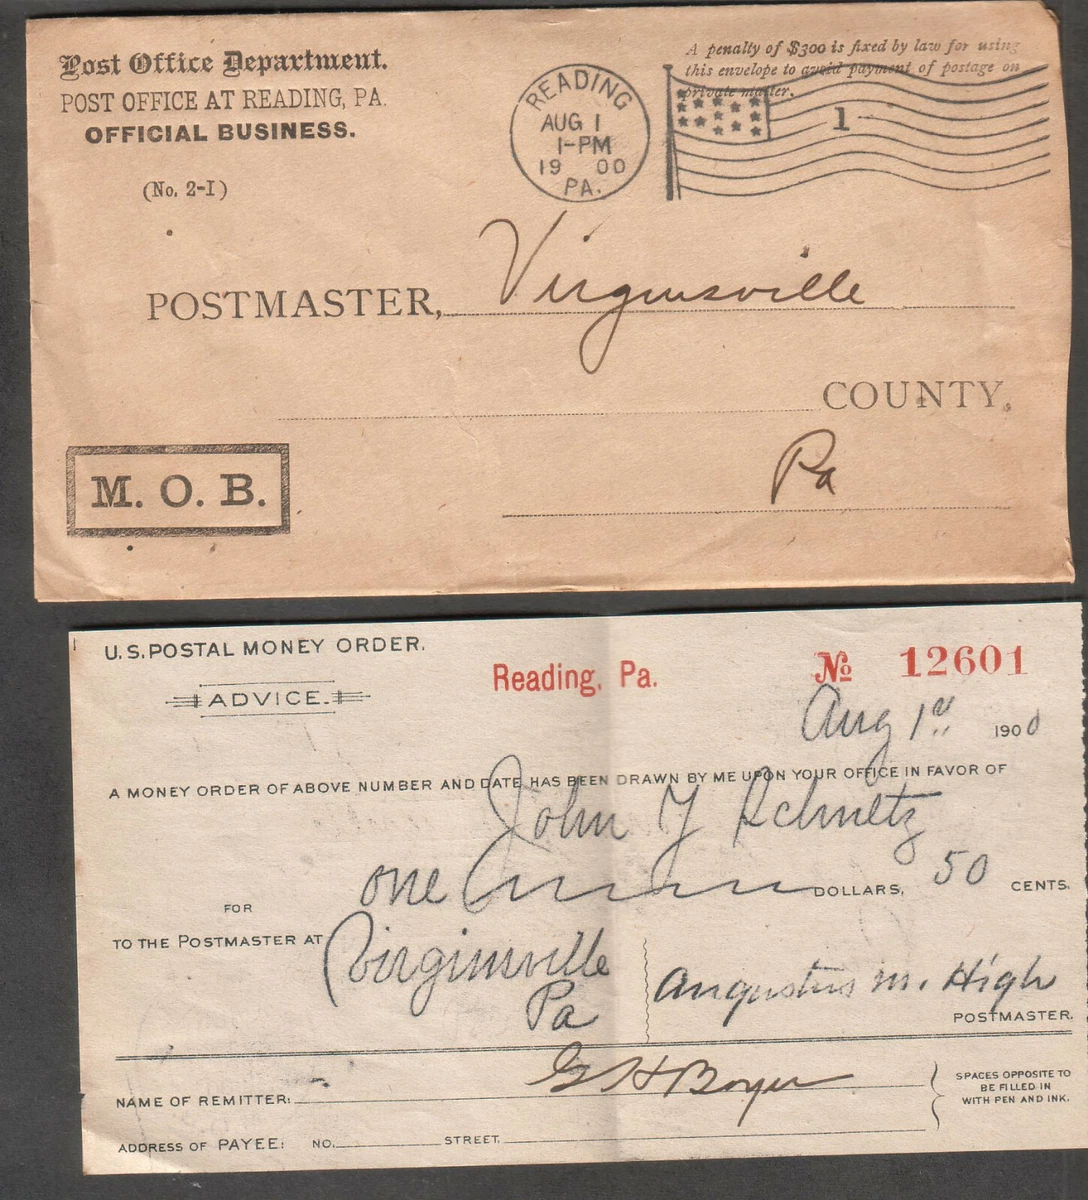 Post Office Department.
POST OFFICE AT READING, PA.
OFFICIAL BUSINESS.
(No. 2-I)
A penalty of $300 is fixed by law for using
this envelope to avoid payment of postage on
private matter.
READING
AUG 1
1-PM
19 00
PA.
1
POSTMASTER, Virginsville
COUNTY,
Pa
M. O. B.
U.S. POSTAL MONEY ORDER.
ADVICE.
Reading, Pa.
No 12601
Aug 1st 1900
A MONEY ORDER OF ABOVE NUMBER AND DATE HAS BEEN DRAWN BY ME UPON YOUR OFFICE IN FAVOR OF
John Y Schmeltz
one DOLLARS, 50 CENTS.
FOR
TO THE POSTMASTER AT Virginsville
Pa
Augustus M. High
POSTMASTER.
NAME OF REMITTER: G H Boyer
SPACES OPPOSITE TO
BE FILLED IN
WITH PEN AND INK.
ADDRESS OF PAYEE: NO. STREET,